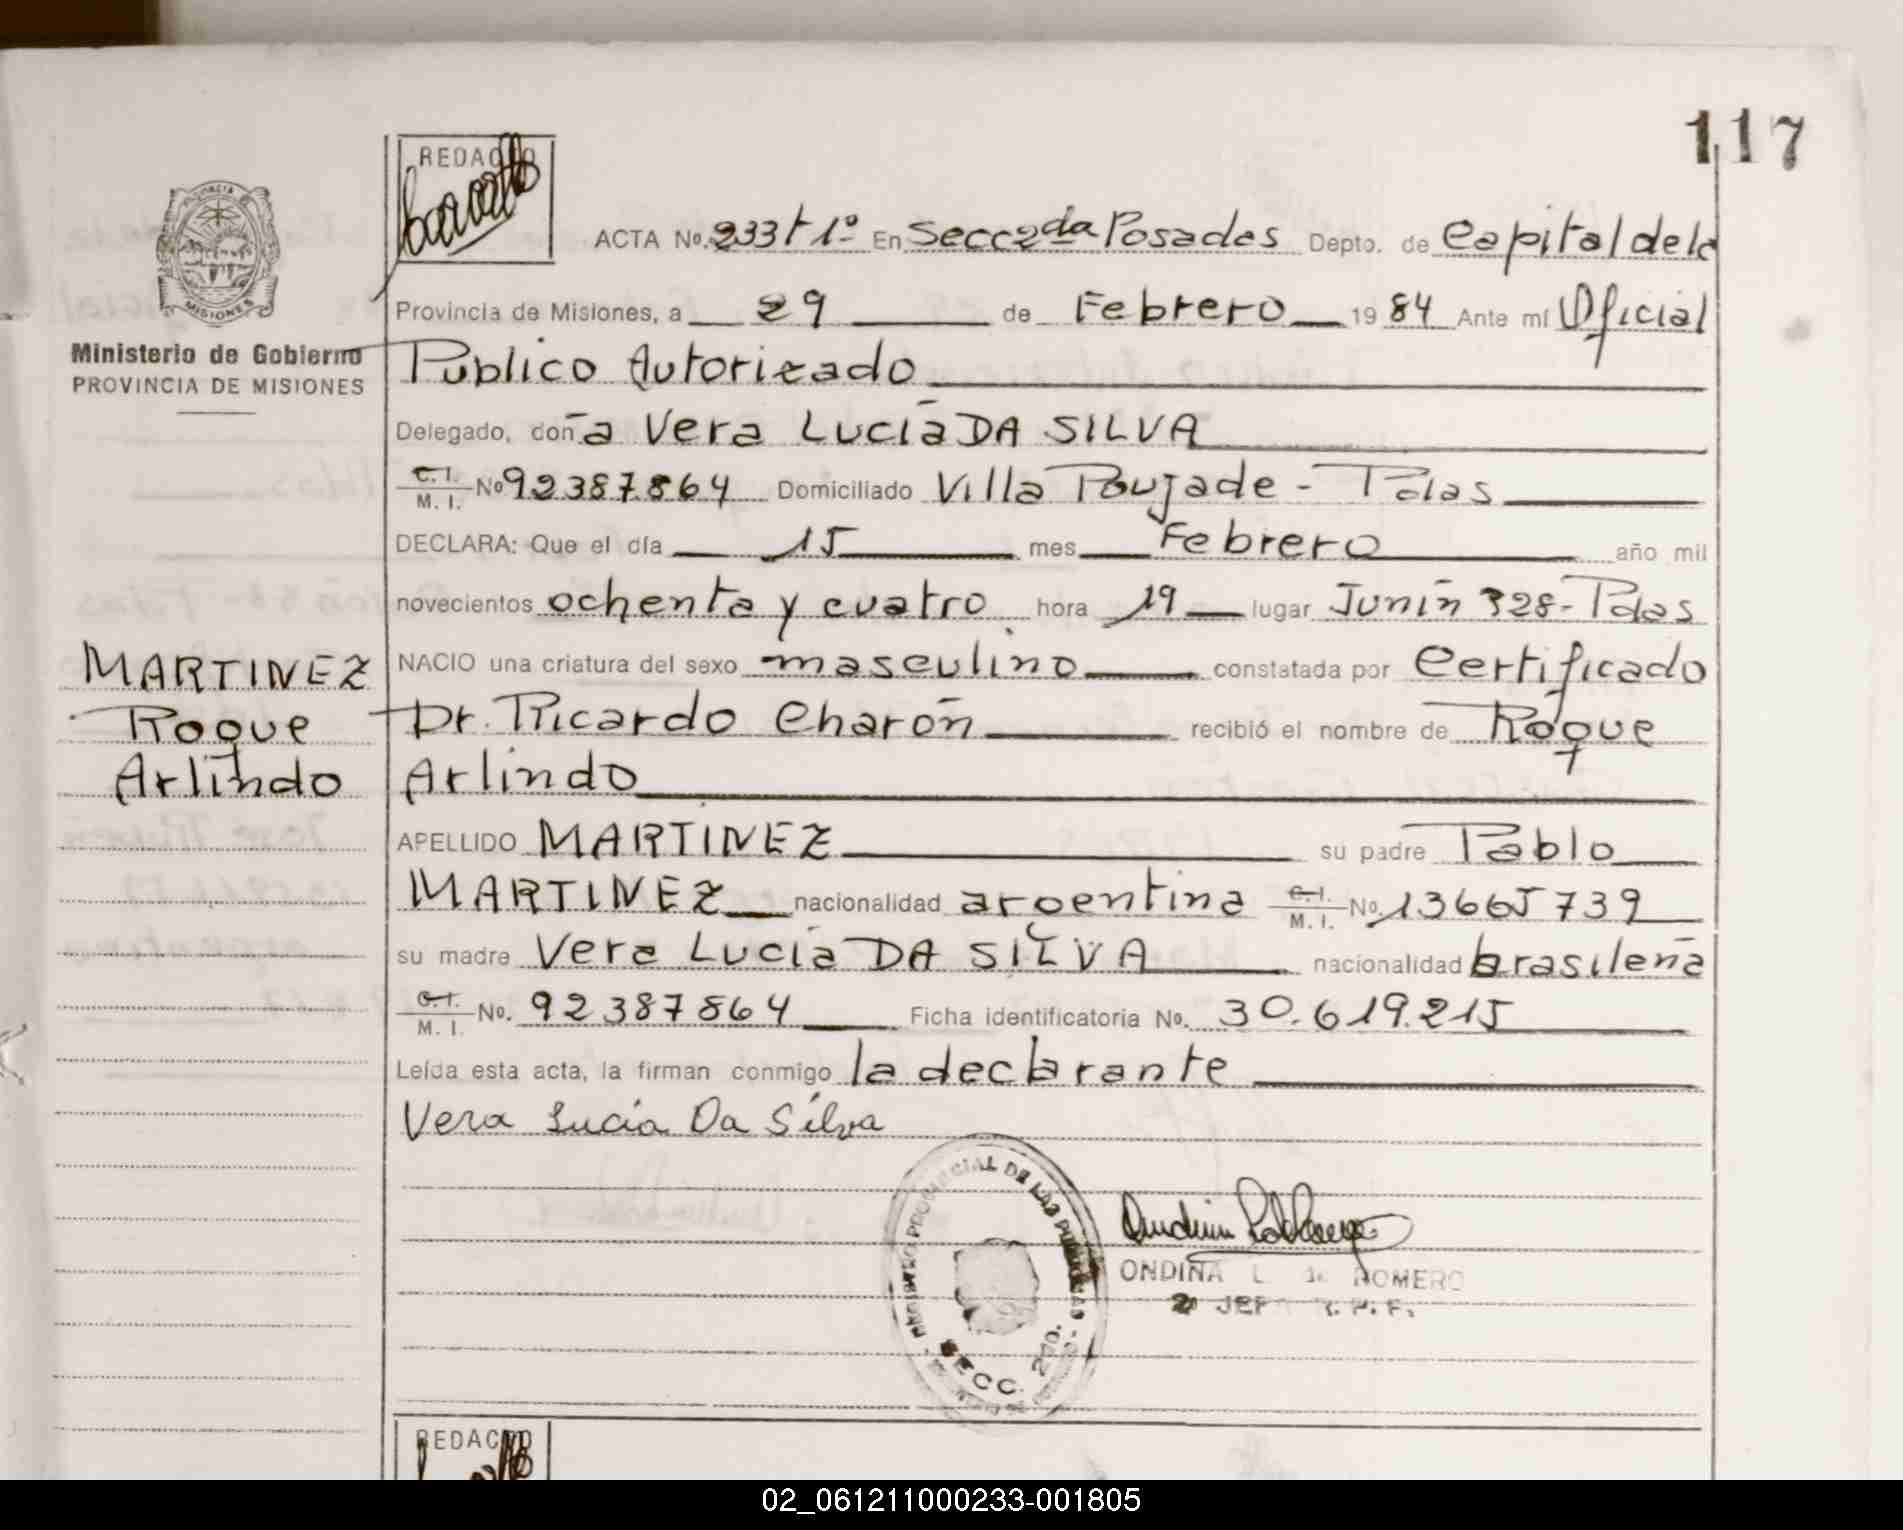 117
REDACTO
ACTA No. 233 t 1º En Secc 2da Posadas Depto. de Capital de la
Provincia de Misiones, a 29 de Febrero 1984 Ante mí Oficial
Ministerio de Gobierno
PROVINCIA DE MISIONES
Público Autorizado
Delegado, doña Vera Lucía DA SILVA
C. I. M. I. No 92387864 Domiciliado Villa Poujade - Pdas
DECLARA: Que el día 15 mes Febrero año mil
novecientos ochenta y cuatro hora 19 lugar Junín 328 - Pdas
NACIO una criatura del sexo masculino constatada por Certificado
Dr. Ricardo Charón recibió el nombre de Roque
Arlindo
MARTINEZ
Roque
Arlindo
APELLIDO MARTINEZ su padre Pablo
MARTINEZ nacionalidad argentina C. I. M. I. No. 13665739
su madre Vera Lucía DA SILVA nacionalidad brasileña
C. I. M. I. No. 92387864 Ficha identificatoria No. 30.619.215
Leída esta acta, la firman conmigo la declarante
Vera Lucia Da Silva
REGISTRO PROVINCIAL DE LAS PERSONAS
SECC. 2da.
ONDINA L. de ROMERO
2 JEFE R. P. P.
REDACTO
02_061211000233-001805